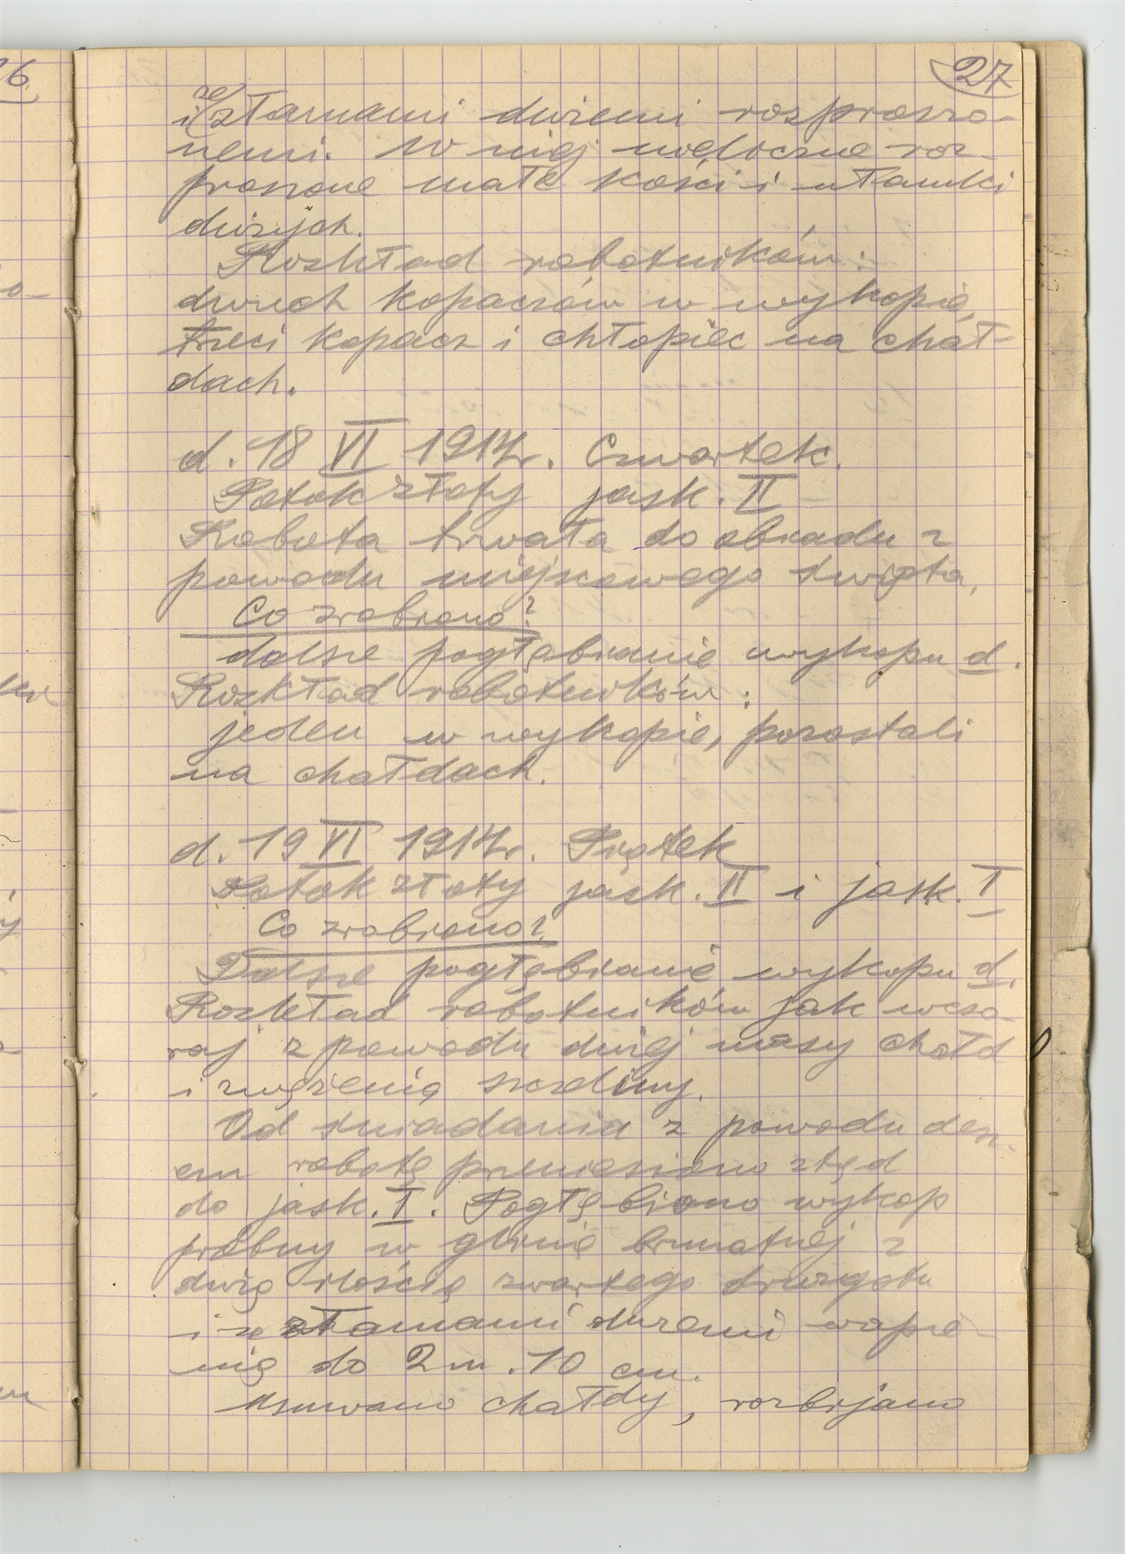 27
ze
i złamami dużemi rozproszo-
nemi. W niej widoczne roz-
proszone małe kości i ułamki
dużych.
Rozkład robotników:
dwuch kopaczów w wykopie,
trzeci kopacz i chłopiec na chał-
dach.
d. 18 VI 1914 r. Czwartek.
Potok złoty jask. II
Robota trwała do obiadu z
powodu miejscowego święta,
Co zrobiono?
dalsze pogłębianie wykopu d.
Rozkład robotników:
jeden w wykopie, pozostali
na chałdach.
d. 19 VI 1914 r. Piątek
Potok złoty jask. II i jask. I
Co zrobiono?
Dalsze pogłębianie wykopu d.
Rozkład robotników jak wczo-
raj z powodu dużej masy chałd
i zwężenia szczeliny.
Od śniadania z powodu desz-
czu robotę przeniesiono ztąd
do jask. I. Pogłębiono wykop
próbny w glinie brunatnej z
dużą ilością zwartego druzgotu
i ze złamami dużemi wapie-
nia do 2 m. 10 cm.
Usuwano chałdy, rozbijano